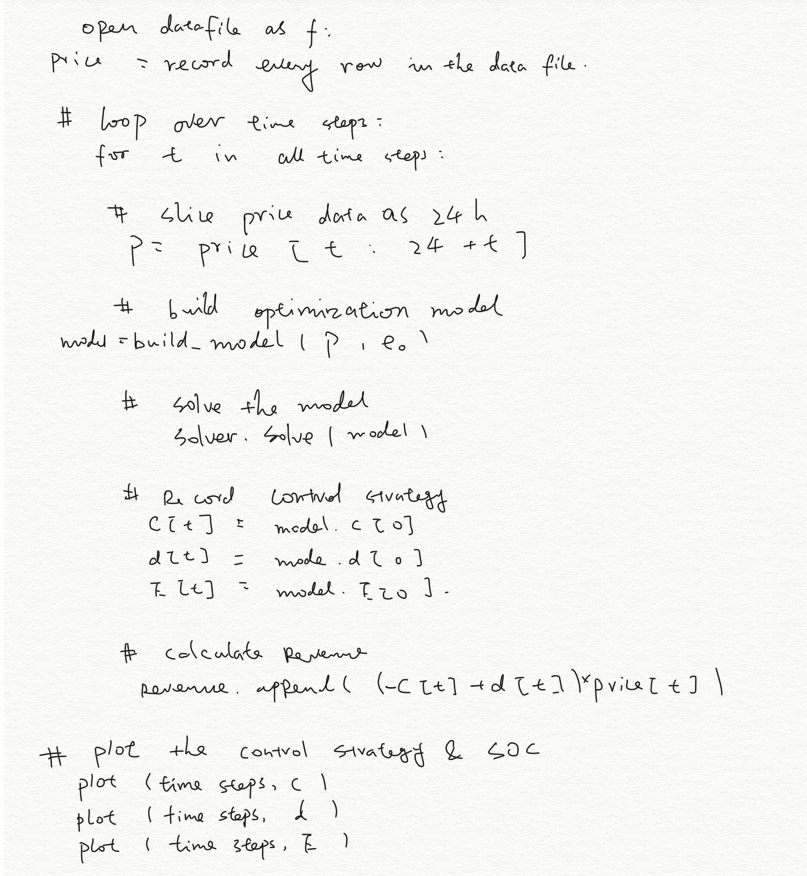 open datafile as f:
price = record every row in the data file.
# loop over time steps:
for t in all time steps:
# slice price data as 24 h
P = price [ t : 24 + t ]
# build optimization model
model = build_model ( P , e0 )
# solve the model
solver. solve ( model )
# Record control strategy
C[t] = model. c [0]
d[t] = mode. d [0]
E[t] = model. E[0].
# calculate Revenue
Revenue. append( (-C[t] + d[t])*price[t] )
# plot the control strategy & SOC
plot (time steps, c )
plot (time steps, d )
plot (time steps, E )